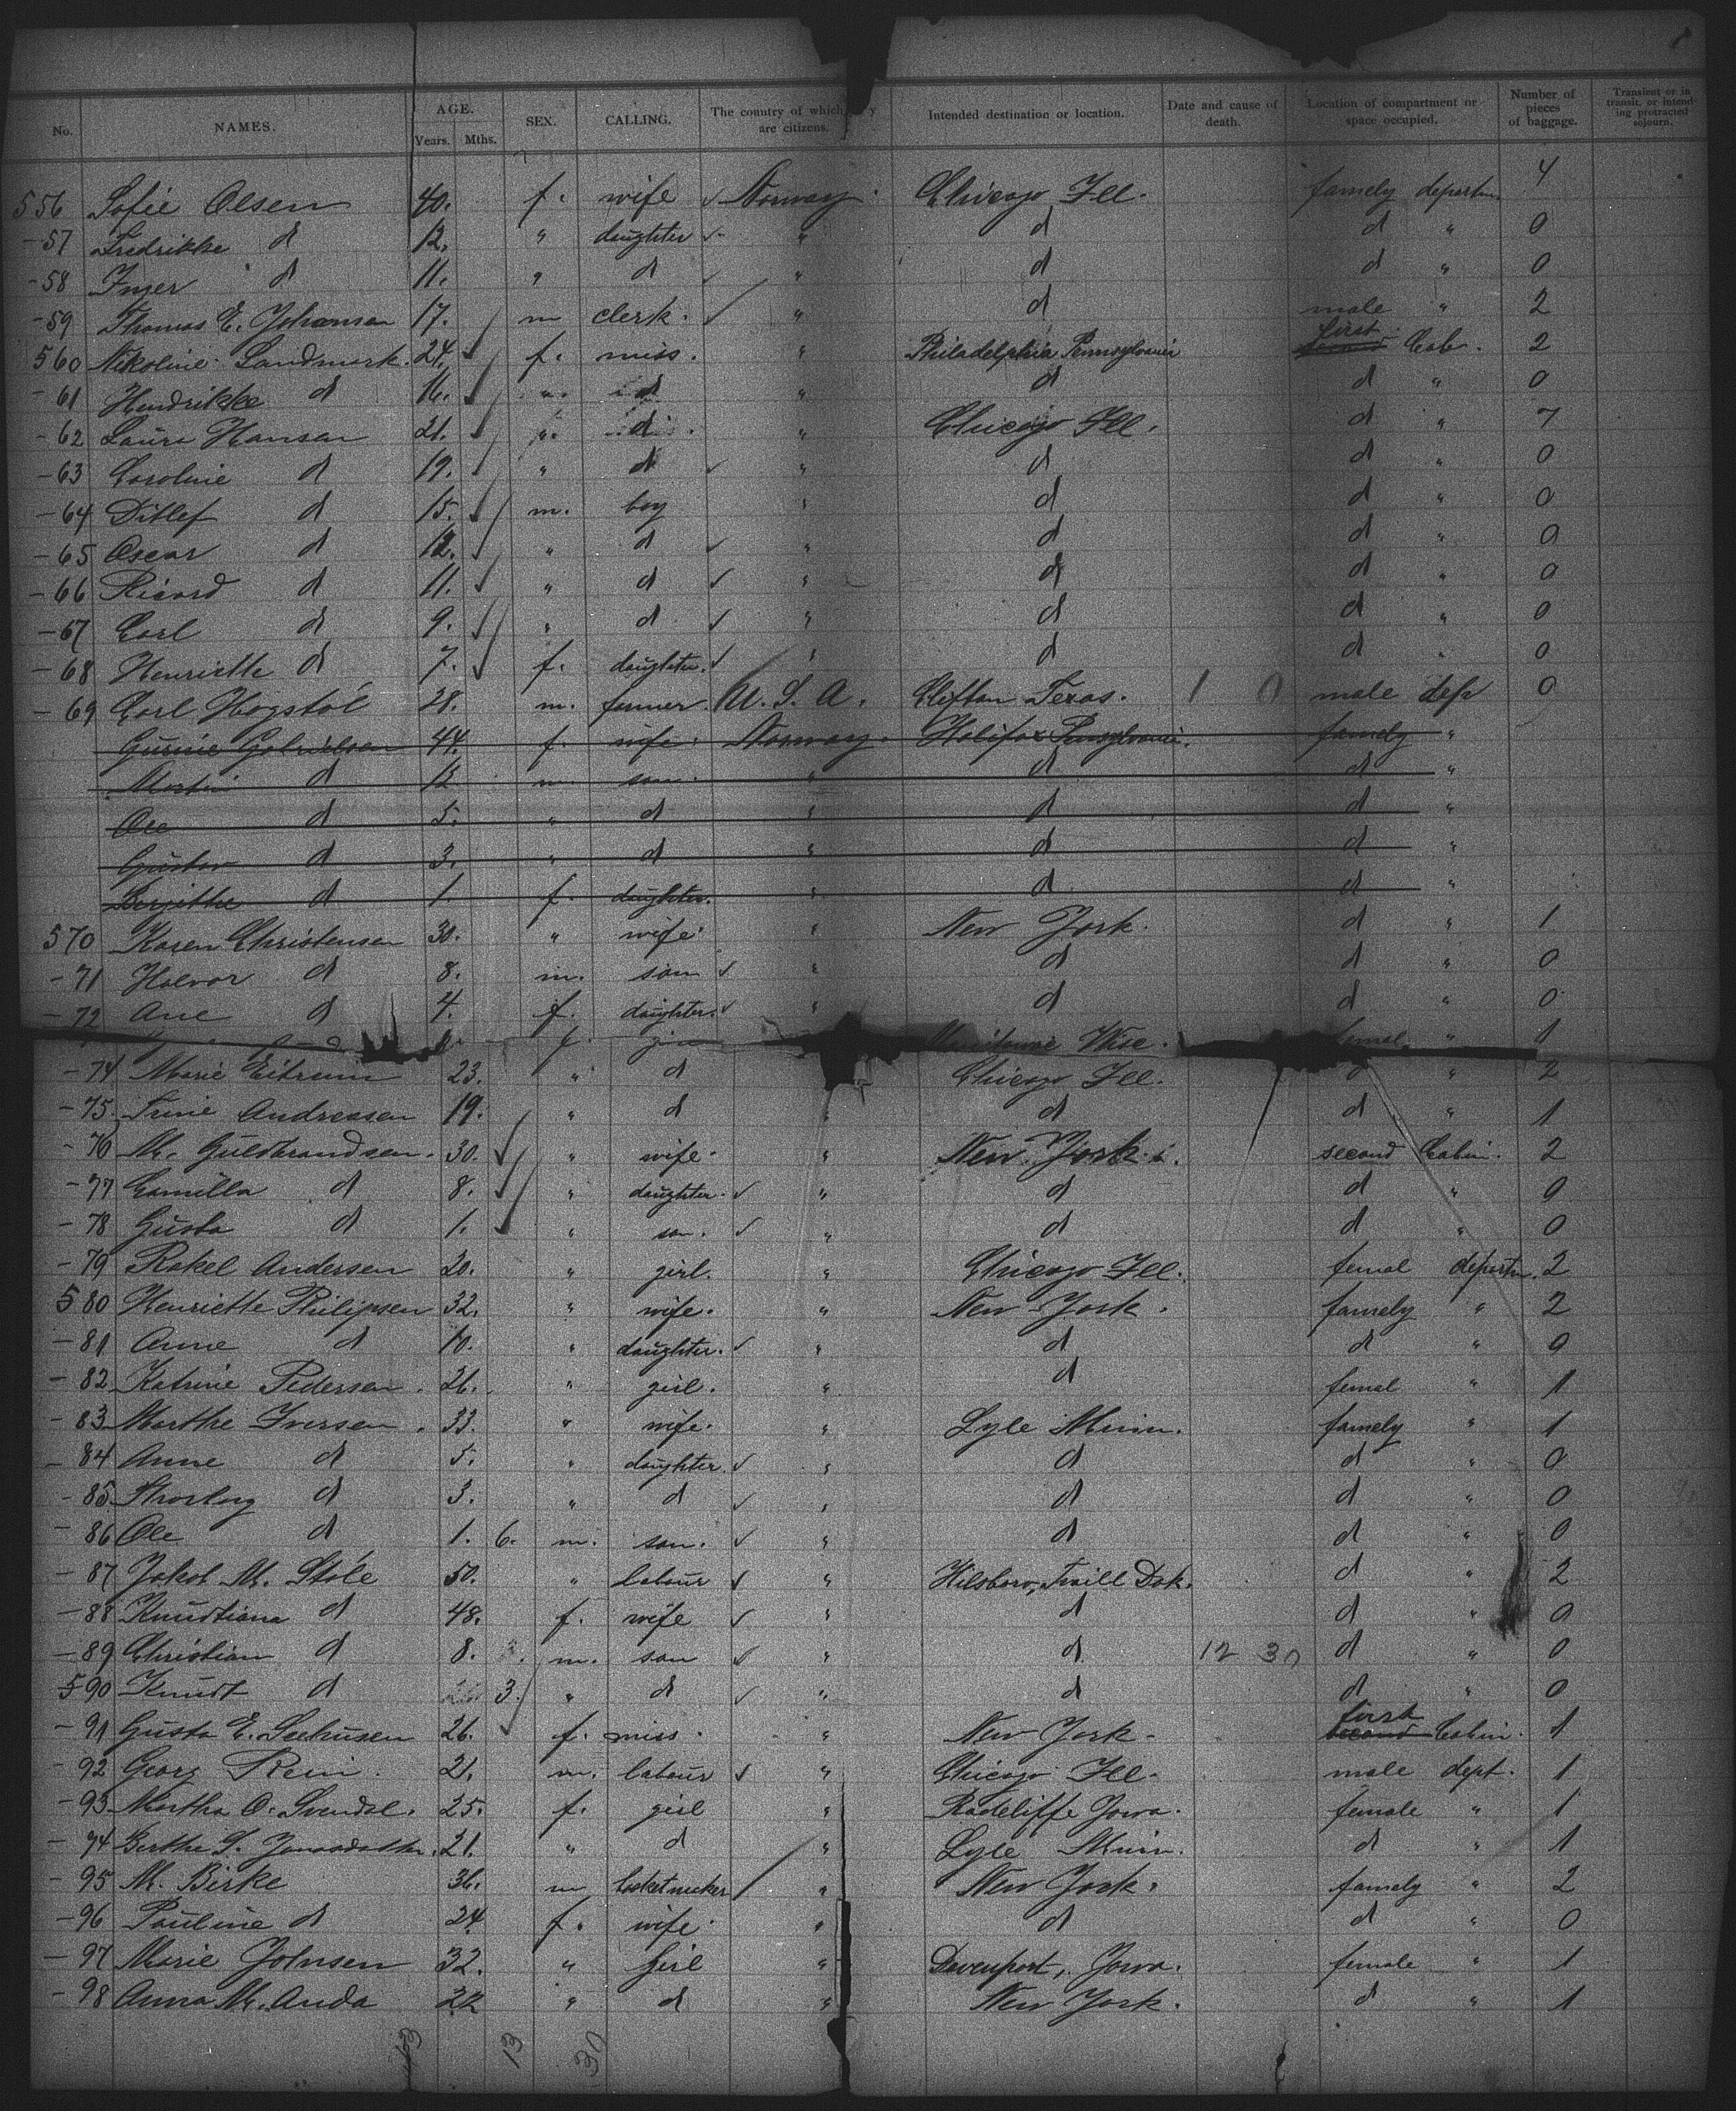 No. NAMES. AGE. Years. Mths. SEX. CALLING. The country of which are citizens. Intended destination or location. Date and cause of death. Location of compartment or space occupied. Number of pieces of baggage. Transient or in transit, or intending protracted sojourn.
556 Sofie Olsen 40. f. wife Norway. Chicago Ill. famely departm. 4
-57 Fredrikke d 12. " daughter " d d " 0
-58 Inger d 11. " d " d d " 0
-59 Thomas E. Johansen 17. m clerk. " d male " 2
560 Nikoline Landmark. 24. f. miss. " Philadelphia Pennsylvania first Cab. 2
-61 Hendrikke d 16. " d " d d " 0
-62 Laura Hansen 21. " d " Chicago Ill. d " 7
-63 Caroline d 19. " d " d d " 0
-64 Ditlef d 15. m. boy " d d " 0
-65 Oscar d 12. " d " d d " 0
-66 Ricard d 11. " d " d d " 0
-67 Carl d 9. " d " d d " 0
-68 Henriette d 7. f. daughter. " d d " 0
-69 Carl Högstöl 28. m. farmer. U. S. A. Clifton Texas. 1 0 male dep 0
Gurine Gabrielsen 44. f. wife. Norway. Halifax Pensylvania. famely "
Martin d m son. " d d "
Ole d 5. " d " d d "
Gustav d 3. " d " d d "
Birgitthe d 1. f. daughter. " d d "
570 Karen Christensen 30. " wife. " New York. d " 1
-71 Halvor d 8. m. son " d d " 0
-72 Ane d 4. f. daughter. " d d " 0
Wisc. femal " 1
-74 Marie Eitrem 23. " d Chicago Ill. d " 2
-75. Trine Andreasen 19. " d " d d " 1
-76 M. Guldbrandsen. 30. " wife. " New York. second Cabin. 2
-77 Camilla d 8. " daughter. " d d " 0
-78 Gusta d 1. " son. " d d " 0
-79 Rakel Andersen 20. " girl. " Chicago Ill. femal departm. 2
580 Henriette Philipsen 32. " wife. " New York. famely " 2
-81 Anne d 10. " daughter. " d d " 0
-82 Katrine Pedersen. 26. " girl. " d femal " 1
-83 Marthe Iversen. 33. " wife. " Lyle Minn. famely " 1
-84 Anne d 5. " daughter. " d d " 0
-85 d 3. " d " d d " 0
-86 Ole d 1. 6. m. son. " d d " 0
-87 Jakob M. Stöle 50. " labour " Hilsboro, Traill Dak. d " 2
-88 Knudtiana d 48. f. wife " d d " 0
-89 Christian d 8. m. son " d 12 30 d " 0
590 Knudt d 3. " d " d d " 0
-91 Gusta E. Seehusen 26. f. miss. " New York. first second Cabin. 1
-92 Georg Rein. 21. m. labour " Chicago Ill. male dept. 1
-93 Martha O. Svendsl. 25. f. girl " Radcliffe Jowa. female " 1
-94 Berthe S. Jonasdatter. 21. " d " Lyle Minn. d " 1
-95 M. Birke 36. m " New York. famely " 2
-96 Pauline d 24 f. wife. " d d " 0
-97 Marie Johnsen 32. " girl " Davenport, Jowa. female " 1
-98 Anna M. Anda 22 " d " New York. d " 1
13 30